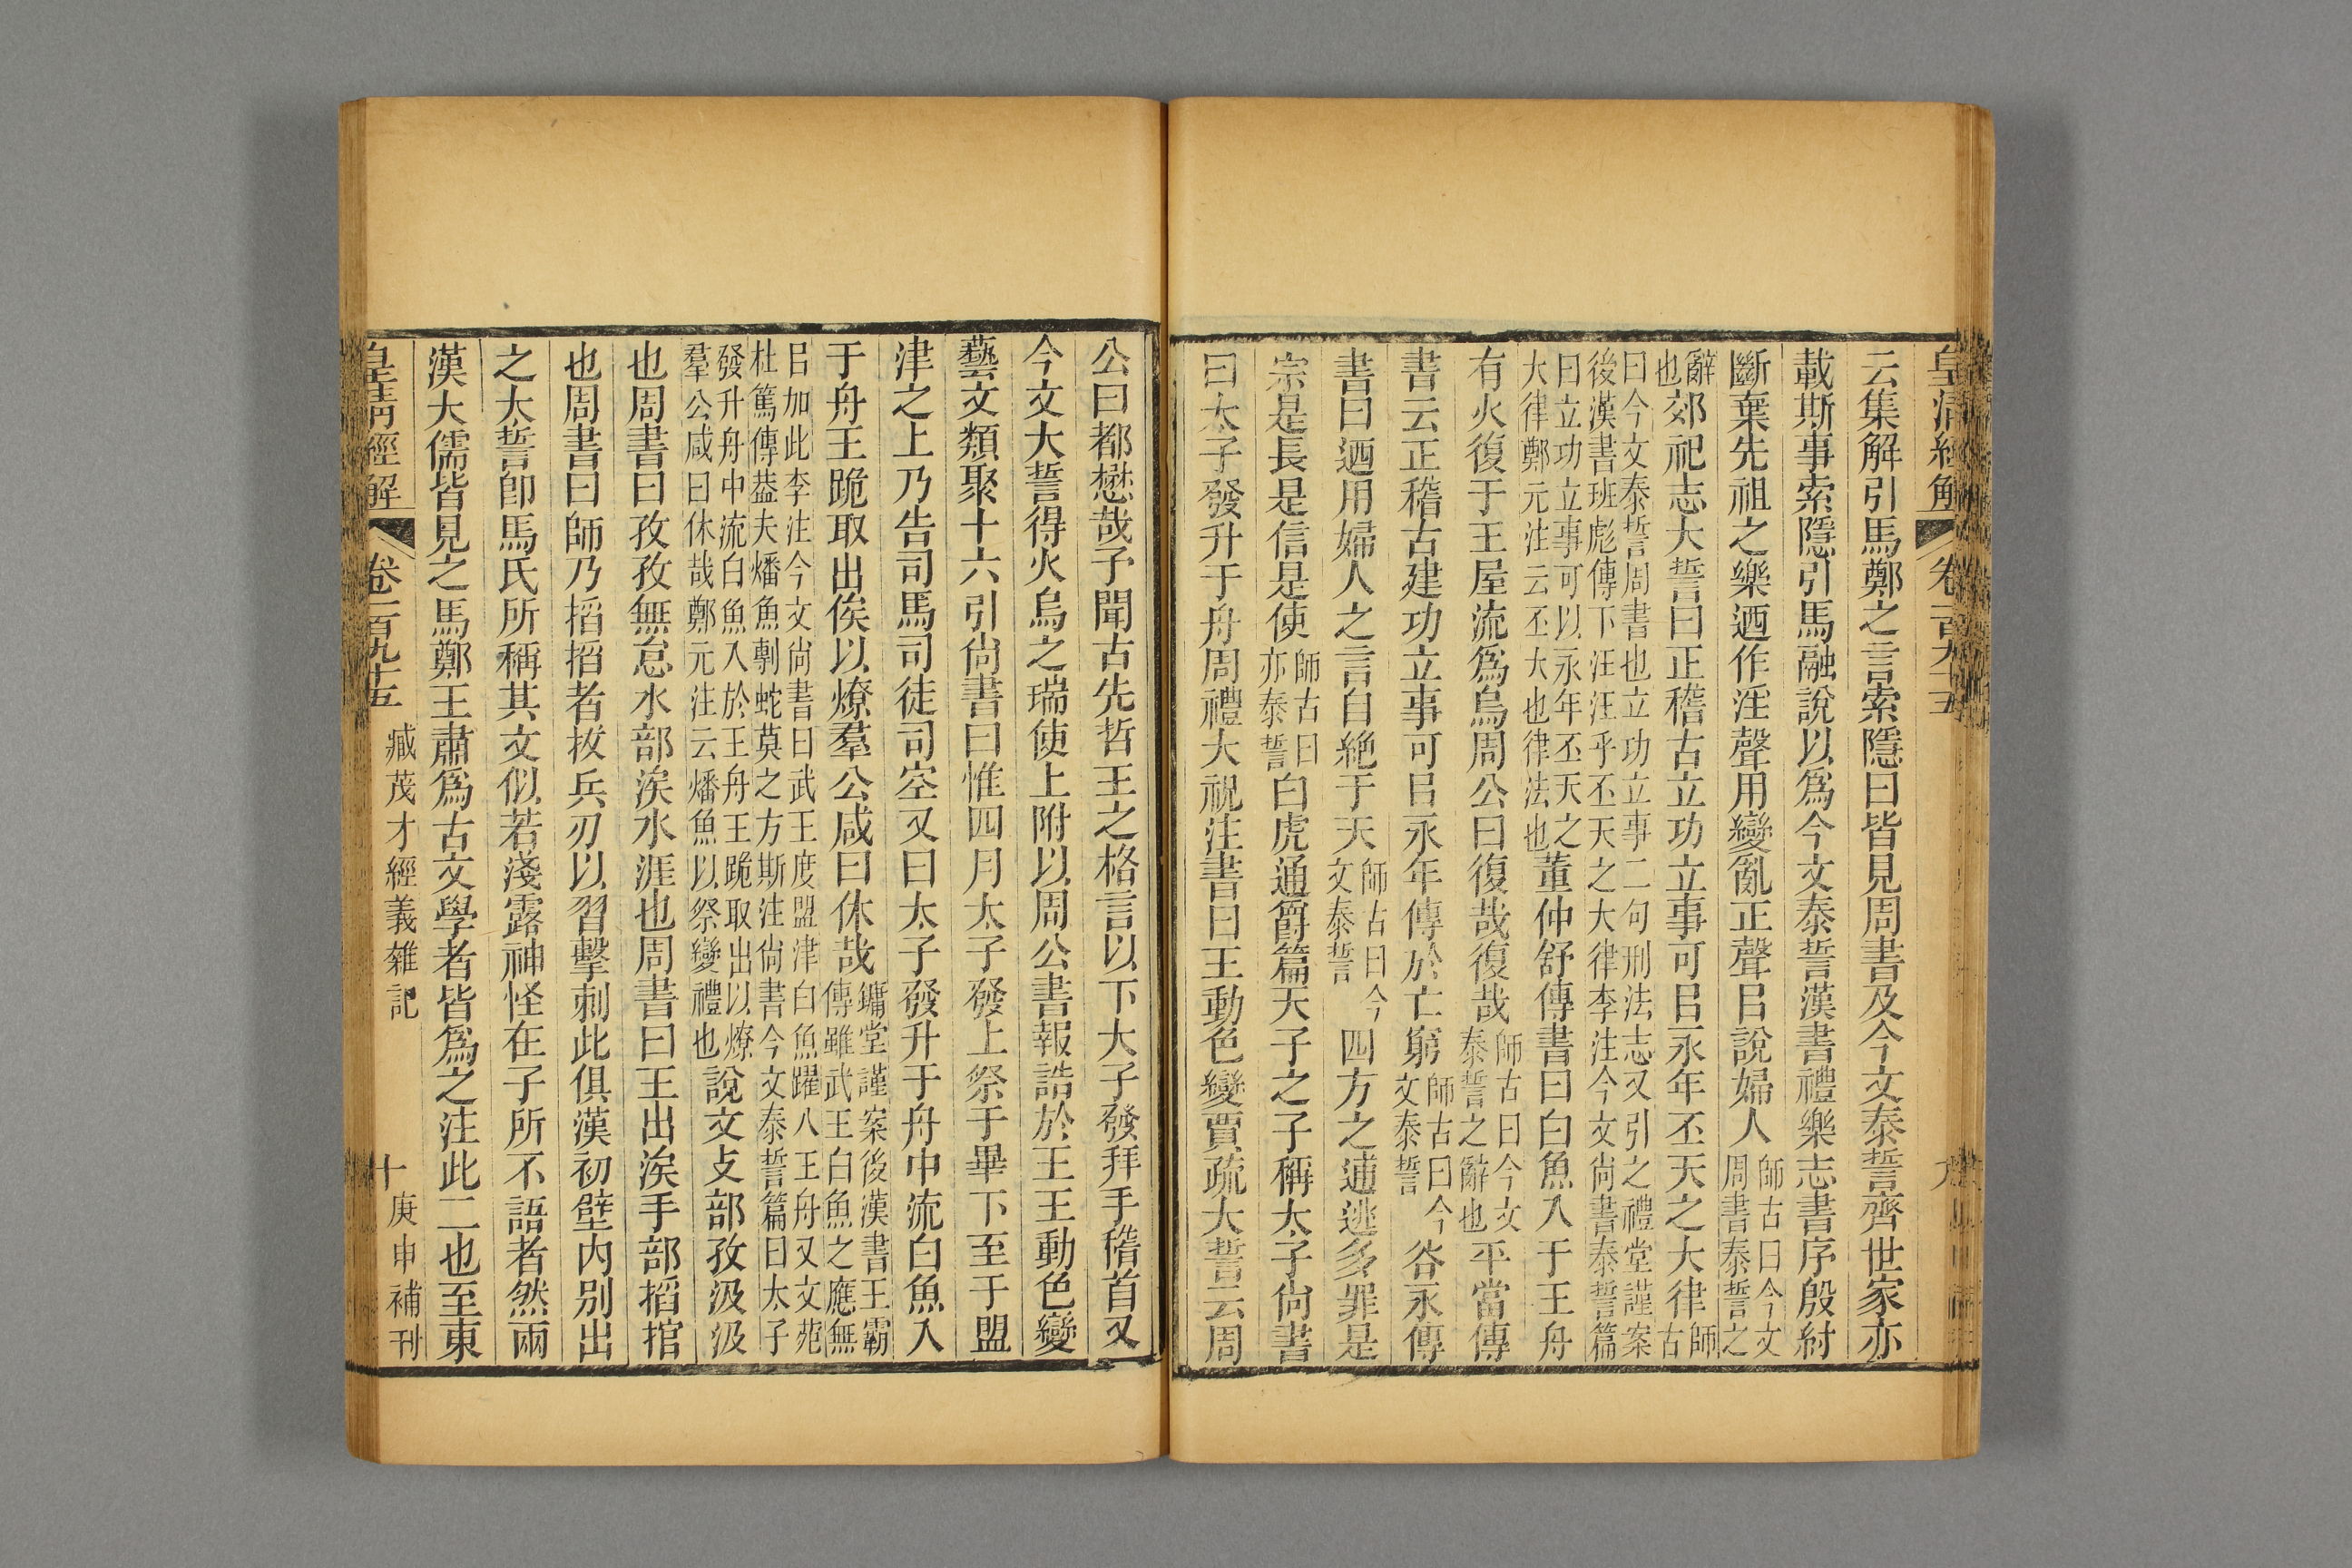 皇清經解 卷一百九十五 九
云集解引馬鄭之言索隱曰皆見周書及今文泰誓齊世家亦
載斯事索隱引馬融說以為今文泰誓漢書禮樂志書序殷紂
斷棄先祖之樂迺作淫聲用變亂正聲㠯說婦人師古曰今文周書泰誓之
辭也郊祀志大誓曰正稽古立功立事可㠯永年丕天之大律師古
曰今文泰誓周書也立功立事二句刑法志又引之禮堂謹案
後漢書班彪傳下汪汪乎丕天之大律李注今文尚書泰誓篇
曰立功立事可以永年丕天之
大律鄭元注云丕大也律法也董仲舒傳書曰白魚入于王舟
有火復于王屋流為烏周公曰復哉復哉師古曰今文泰誓之辭也平當傳
書云正稽古建功立事可㠯永年傳於亡窮師古曰今文泰誓谷永傳
書曰迺用婦人之言自絕于天師古曰今文泰誓四方之逋逃多罪是
宗是長是信是使師古曰亦泰誓白虎通爵篇天子之子稱太子尚書
曰太子發升于舟周禮大祝注書曰王動色變賈疏大誓云周
公曰都懋哉予聞古先哲王之格言以下大子發拜手稽首又
今文大誓得火烏之瑞使上附以周公書報誥於王王動色變
藝文類聚十六引尚書曰惟四月太子發上祭于畢下至于盟
津之上乃告司馬司徒司空又曰太子發升于舟中流白魚入
于舟王跪取出俟以燎羣公咸曰休哉鏞堂謹案後漢書王霸傳雖武王白魚之應無
㠯加此李注今文尚書曰武王度盟津白魚躍入王舟又文苑
杜篤傳葢夫燔魚剸蛇莫之方斯注尚書今文泰誓篇曰太子
發升舟中流白魚入於王舟王跪取出以燎
羣公咸曰休哉鄭元注云燔魚以祭變禮也說文攴部孜汲汲
也周書曰孜孜無怠水部涘水涯也周書曰王出涘手部搯掐
也周書曰師乃搯搯者拔兵刃以習擊刺此俱漢初壁內別出
之太誓卽馬氏所稱其文似若淺露神怪在子所不語者然兩
漢大儒皆見之馬鄭王肅為古文學者皆為之注此二也至東
皇清經解 卷一百九十五 臧茂才經義雜記 十 庚申補刊